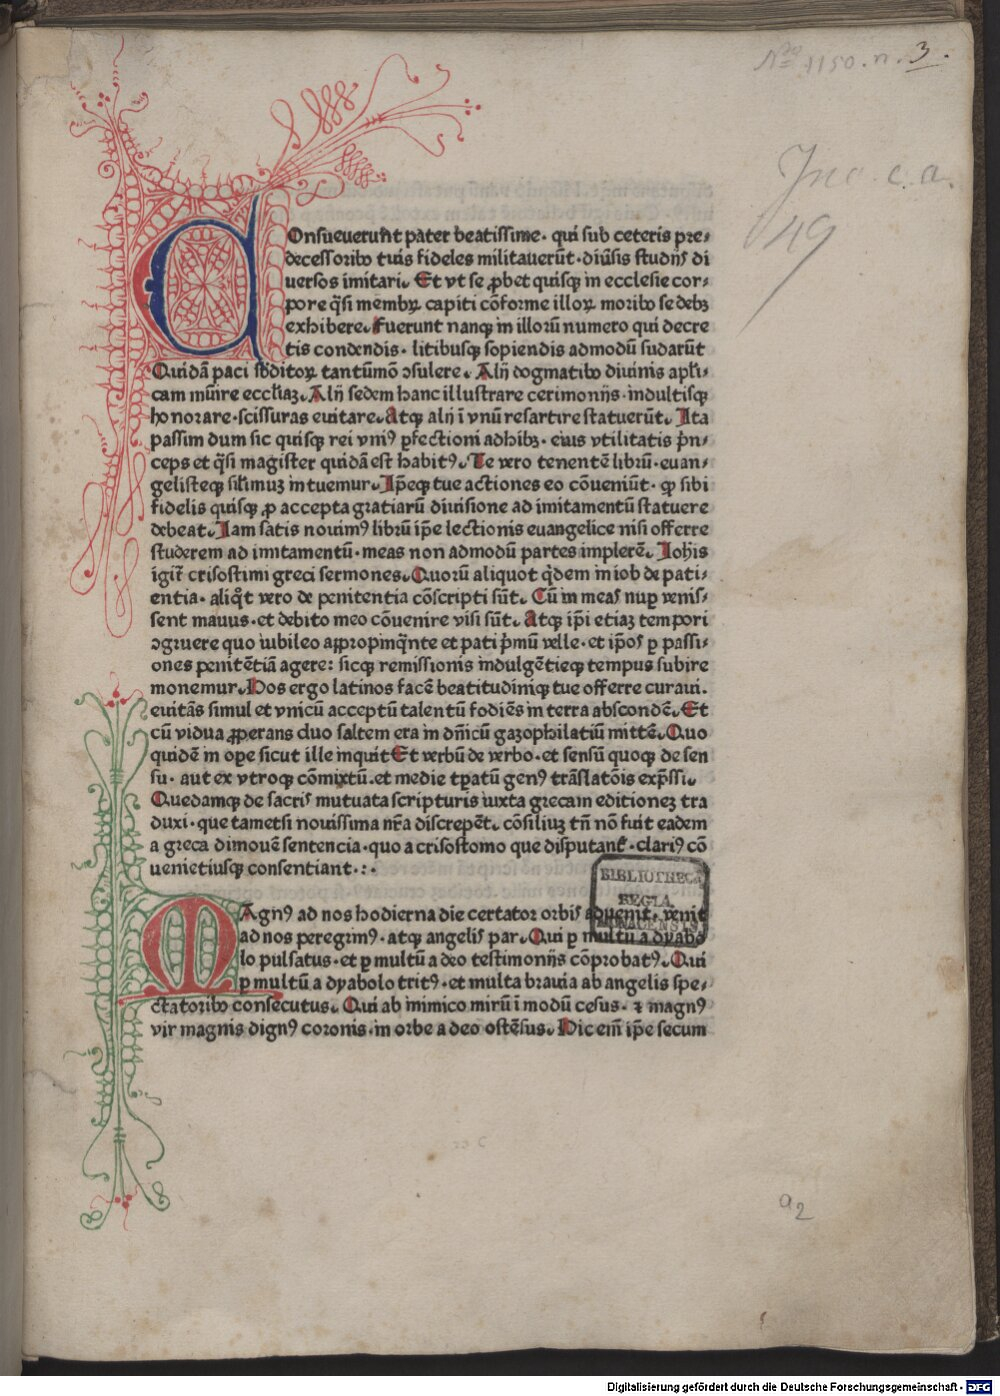 Nro 1150. n. 3.
Inc. c. a.
49
COnsueuerunt pater beatissime· qui sub ceteris pre⸗
decessoribꝰ tuis fideles militauerūt· diūsis studijs di
uersos imitari. Et vt se ꝓbet quisqꝫ in ecclesie cor⸗
pore q̄si membꝝ capiti cōforme illoꝝ moribꝰ se debꝫ
exhibere. Fuerunt nanqꝫ in illorū numero qui decre
tis condendis· litibusqꝫ sopiendis admodū sudarūt
Quidā paci sb̄ditoꝝ tantūmō ꝯsulere. Alij dogmatibꝰ diuinis apl̄i⸗
cam mūire eccl̄iaꝫ. Alij sedem hanc illustrare cerimonijs· indultisqꝫ
honorare· scissuras euitare. Atqꝫ alij ī vnū resartire statuerūt. Ita
passim dum sic quisqꝫ rei vniꝰ ꝑfectioni adhibꝫ· eius vtilitatis p̄n⸗
ceps et q̄si magister quidā est habitꝰ. Te vero tenentē librū· euan⸗
gelisteqꝫ sil̄imuꝫ intuemur. Ip̄eqꝫ tue actiones eo cōueniūt· ꝙ sibi
fidelis quisqꝫ ꝓ accepta gratiarū diuisione ad imitamentū statuere
debeat. Iam satis nouimꝰ librū ip̄e lectionis euangelice nisi offerre
studerem ad imitamentū· meas non admodū partes implerē. Ioh̄is
igit̄ crisostimi greci sermones. Quorū aliquot q̄dem in iob de pati⸗
entia· aliq̄t vero de penitentia cōscripti sūt. Cū in meas nuꝑ venis⸗
sent manus· et debito meo cōuenire visi sūt. Atqꝫ ip̄i etiaꝫ tempori
ꝯgruere quo iubileo appropinq̄nte et pati p̄mū velle· et ip̄os ꝑ passi⸗
ones penitētiā agere: sicqꝫ remissionis indulgētieqꝫ tempus subire
monemur. Hos ergo latinos facē beatitudiniqꝫ tue offerre curaui.
euitās simul et vnicū acceptū talentū fodiēs in terra abscondē. Et
cū vidua ꝓperans duo saltem era in dn̄icū gazophilatiū mittē. Quo
quidē in oꝑe sicut ille inquit Et verbū de verbo· et sensū quoqꝫ de sen
su· aut ex vtroqꝫ cōmixtū· et medie tꝑatū genꝰ trāslatōis exp̄ssi.
Quedamqꝫ de sacris mutuata scripturis iuxta grecam editioneꝫ tra
duxi· que tametsi nouissima nr̄a discrepēt· cōsiliuꝫ tn̄ nō fuit eadem
a greca dimouē sentencia· quo a crisostomo que disputant̄· clariꝰ cō
uenietiusqꝫ consentiant·:·
MAgnꝰ ad nos hodierna die certator orbis aduenit· venit
ad nos peregrinꝰ· atqꝫ angelis par. Qui ꝑ multū a dyabo
lo pulsatus· et ꝑ multū a deo testimonijs cōprobatꝰ. Qui
ꝑ multū a dyabolo tritꝰ· et multa brauia ab angelis spe⸗
ctatoribꝰ consecutus. Qui ab inimico mirū ī modū cesus· ⁊ magnꝰ
vir magnis dignꝰ coronis· in orbe a deo ostēsus. Hic em̄ ip̄e secum
BIBLIOTHECA
REGIA
MONACENSIS
a2
Digitalisierung gefördert durch die Deutsche Forschungsgemeinschaft - DFG